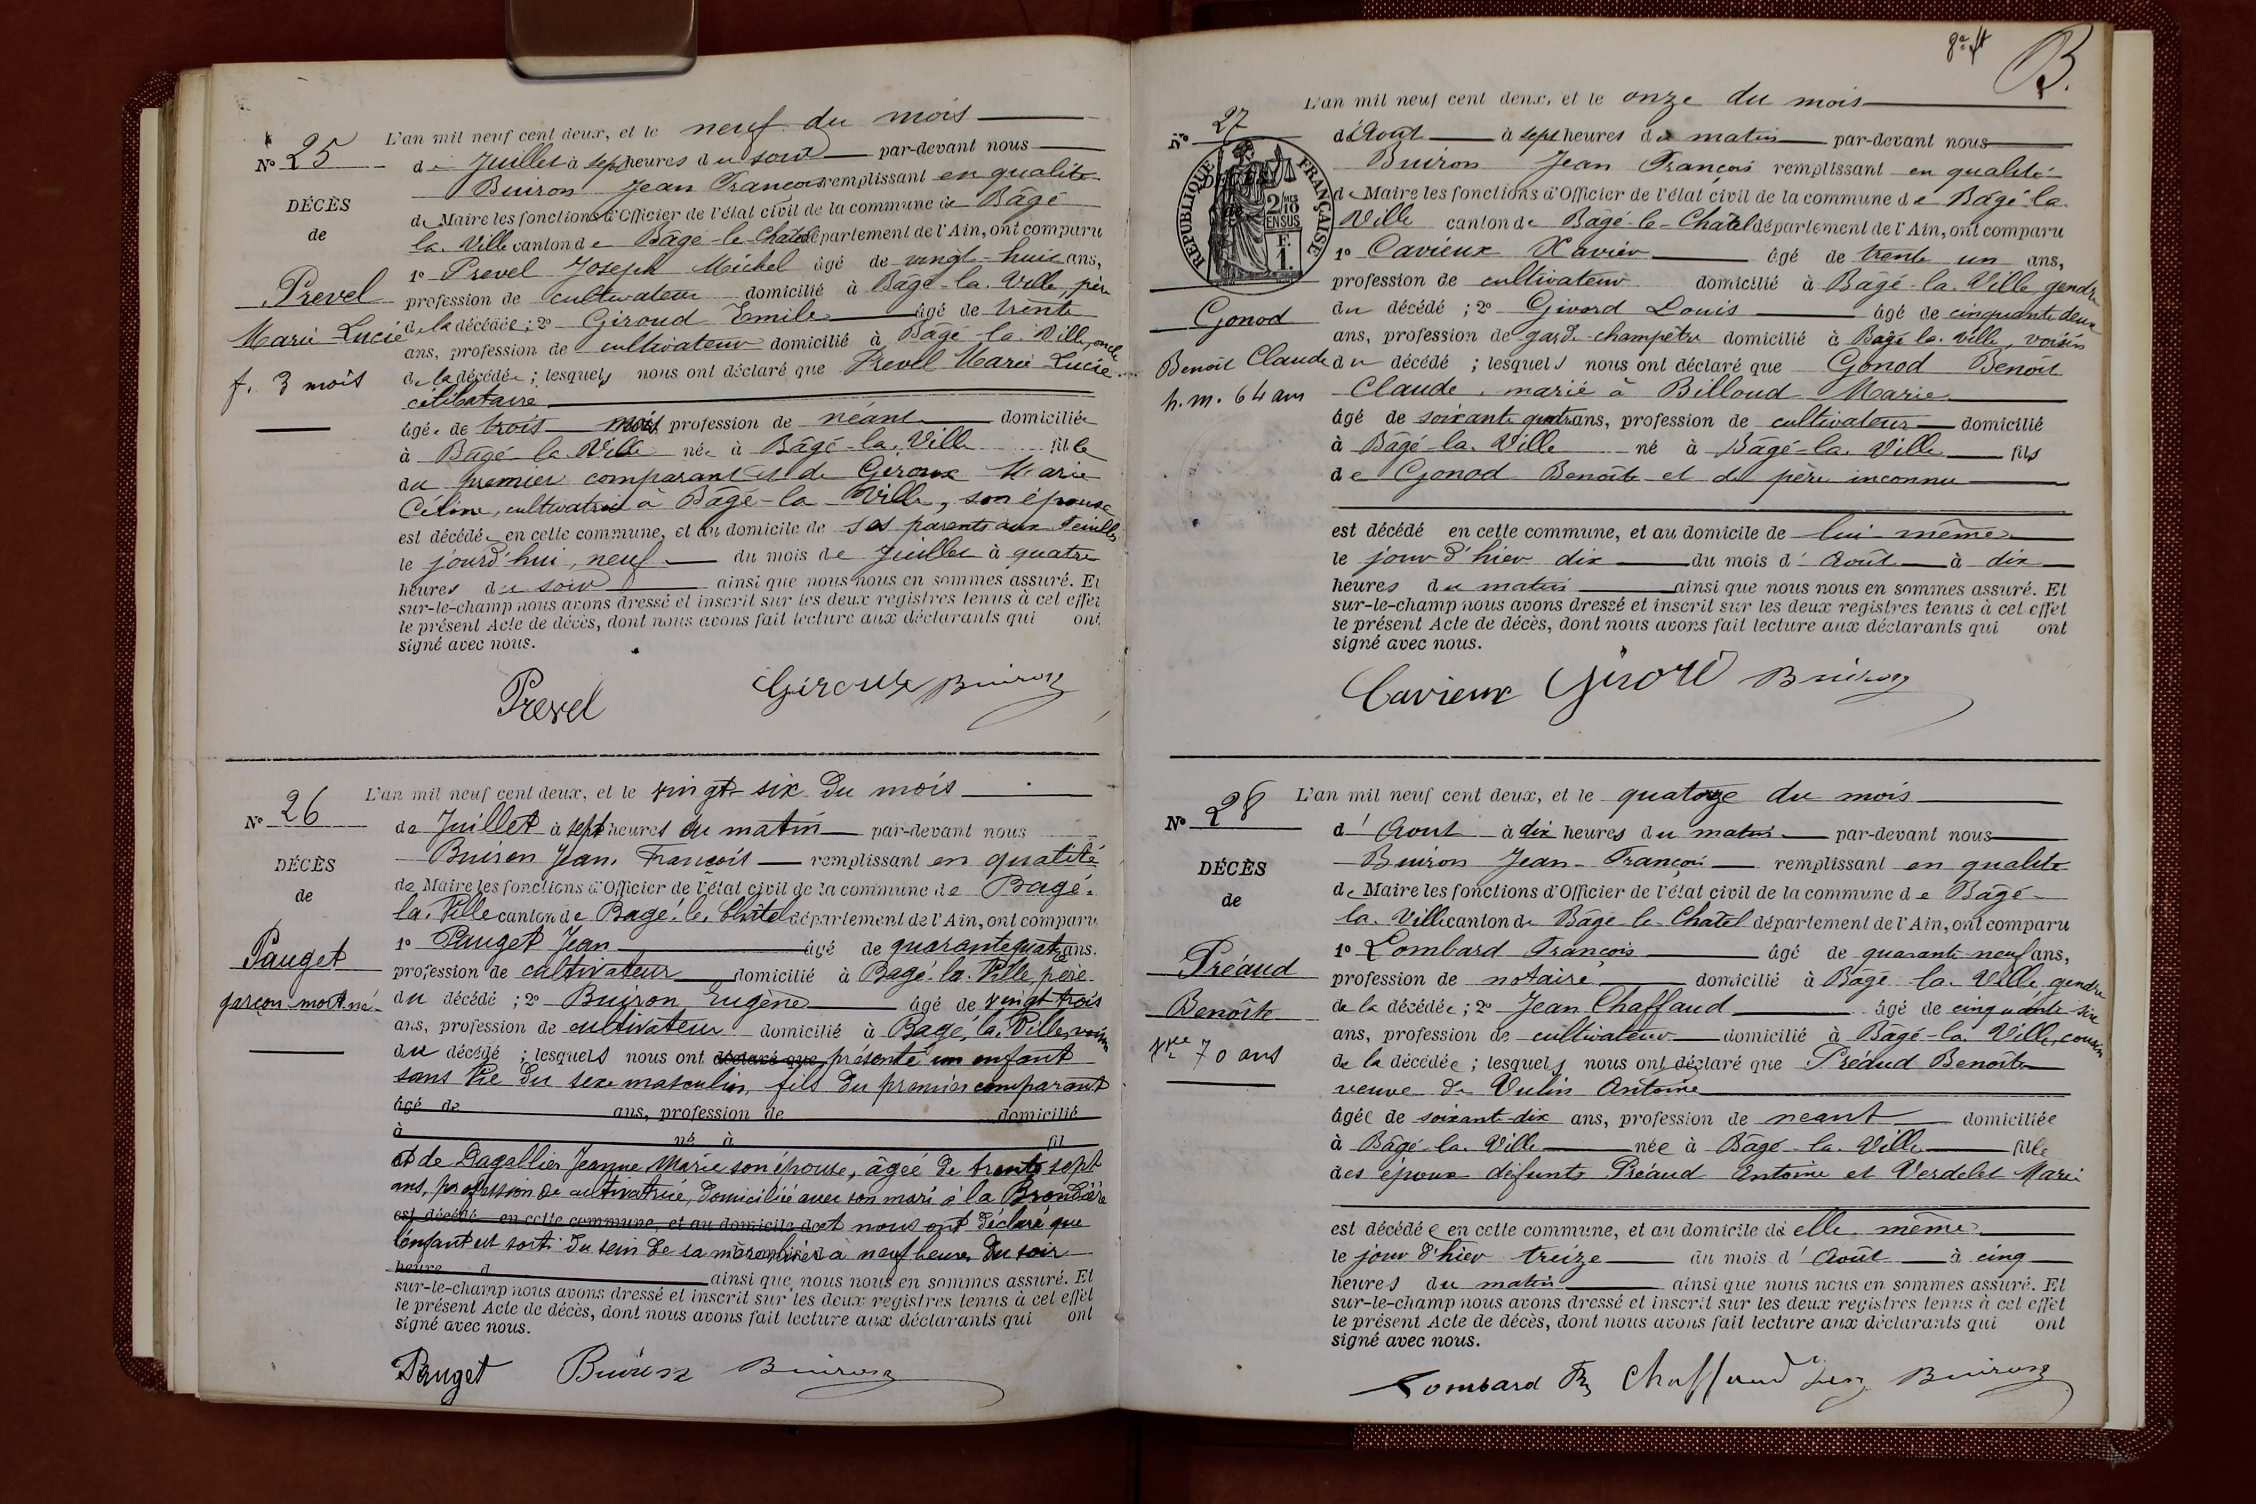 N° 25
DÉCÈS
de
Prevel
Marie Lucie
f. 3 mois
L'an mil neuf cent deux, et le neuf du mois
de Juillet à sept heures du soir par-devant nous
Buiron Jean François remplissant en qualité
de Maire les fonctions d'Officier de l'état civil de la commune de Bâgé
la Ville canton de Bâgé-le-Châtel département de l'Ain, ont comparu
1° Prevel Joseph Michel âgé de vingt-huit ans,
profession de cultivateur domicilié à Bâgé-la-Ville, père
de la décédée ; 2° Giroud Emile âgé de trente
ans, profession de cultivateur domicilié à Bâgé-la-Ville, oncle
de la décédée ; lesquels nous ont déclaré que Prevel Marie Lucie
célibataire
âgée de trois mois profession de néant domiciliée
à Bâgé-la-Ville née à Bâgé-la-Ville fille
du premier comparant et de Giroux Marie
Céline, cultivatrice à Bâgé-la-Ville, son épouse
est décédée en cette commune, et au domicile de ses parents aux
le jourd'hui, neuf du mois de Juillet à quatre
heures du soir ainsi que nous nous en sommes assuré. Et
sur-le-champ nous avons dressé et inscrit sur les deux registres tenus à cet effet
le présent Acte de décès, dont nous avons fait lecture aux déclarants qui ont
signé avec nous.
Prevel Giroux Buiron
N° 26
DÉCÈS
de
Pauget
garçon mort-né
L'an mil neuf cent deux, et le vingt-six du mois
de Juillet à sept heures du matin par-devant nous
Buiron Jean François remplissant en qualité
de Maire les fonctions d'Officier de l'état civil de la commune de Bagé-
la-Ville canton de Bagé-le-Châtel département de l'Ain, ont comparu
1° Pauget Jean âgé de quarante quatre ans.
profession de cultivateur domicilié à Bagé-la-Ville, père
du décédé ; 2° Buiron Eugène âgé de vingt trois
ans, profession de cultivateur domicilié à Bagé-la-Ville, voisin
du décédé ; lesquels nous ont déclaré que présenté un enfant
sans vie du sexe masculin, fils du premier comparant
âgé de ans, profession de domicilié
à né à fil
et de Dagallier Jeanne Marie son épouse, âgée de trente sept
ans, profession de cultivatrice, domiciliée avec son mari à la Brondière
est décédé en cette commune, et au domicile de et nous ont déclaré que
l'enfant est sorti du sein de sa mère hier à neuf heures du soir
heure d ainsi que nous nous en sommes assuré. Et
sur-le-champ nous avons dressé et inscrit sur les deux registres tenus à cet effet
le présent Acte de décès, dont nous avons fait lecture aux déclarants qui ont
signé avec nous.
Pauget Buiron Buiron
8e
B.
N° 27
DÉCÈS
de
RÉPUBLIQUE FRANÇAISE
2/10 EN SUS
F. 1.
Gonod
Benoît Claude
h. m. 64 ans
L'an mil neuf cent deux, et le onze du mois
d'Août à sept heures du matin par-devant nous
Buiron Jean François remplissant en qualité
de Maire les fonctions d'Officier de l'état civil de la commune de Bâgé-la-
Ville canton de Bâgé-le-Châtel département de l'Ain, ont comparu
1° Cavieux Xavier âgé de trente un ans,
profession de cultivateur domicilié à Bâgé-la-Ville gendre
du décédé ; 2° Givord Louis âgé de cinquante deux
ans, profession de garde-champêtre domicilié à Bagé-la-Ville, voisin
du décédé ; lesquels nous ont déclaré que Gonod Benoit
Claude, marié à Billoud Marie
âgé de soixante quatre ans, profession de cultivateur domicilié
à Bâgé-la-Ville né à Bâgé-la-Ville fils
de Gonod Benoîte et de père inconnu
est décédé en cette commune, et au domicile de lui-même
le jour d'hier dix du mois d'Août à dix
heures du matin ainsi que nous nous en sommes assuré. Et
sur-le-champ nous avons dressé et inscrit sur les deux registres tenus à cet effet
le présent Acte de décès, dont nous avons fait lecture aux déclarants qui ont
signé avec nous.
Cavieux Givord Buiron
N° 28
DÉCÈS
de
Préaud
Benoîte
Vve 70 ans
L'an mil neuf cent deux, et le quatorze du mois
d'Aout à dix heures du matin par-devant nous
Buiron Jean-François remplissant en qualité
de Maire les fonctions d'Officier de l'état civil de la commune de Bâgé-
la-Ville canton de Bâgé-le-Chatel département de l'Ain, ont comparu
1° Lombard François âgé de quarante-neuf ans,
profession de notaire domicilié à Bâgé-la-Ville, gendre
de la décédée ; 2° Jean Chaffaud âgé de cinquante-six
ans, profession de cultivateur domicilié à Bâgé-la-Ville, cousin
de la décédée ; lesquels nous ont déclaré que Préaud Benoîte
veuve de Vulin Antoine
âgée de soixante-dix ans, profession de néant domiciliée
à Bâgé-la-Ville née à Bâgé-la-Ville fille
des époux défunts Préaud Antoine et Verdelet Marie
est décédée en cette commune, et au domicile de elle-même
le jour d'hier treize du mois d'Août à cinq
heures du matin ainsi que nous nous en sommes assuré. Et
sur-le-champ nous avons dressé et inscrit sur les deux registres tenus à cet effet
le présent Acte de décès, dont nous avons fait lecture aux déclarants qui ont
signé avec nous.
Lombard Fs Chaffaud Jean Buiron